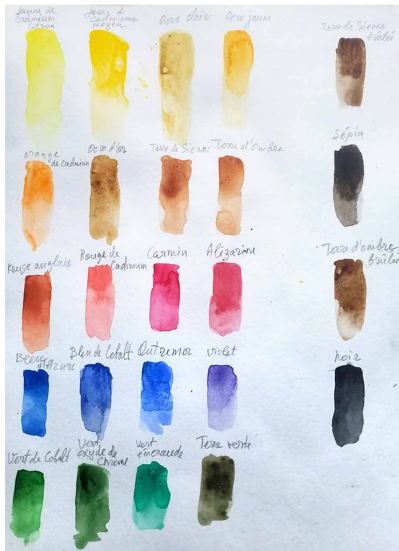 Jaune de
Cadmium
citron
Jaune de
Cadmium
moyen
Ocre claire
Ocre jaune
Terre de Sienne
brûlée
Orange
de Cadmium
Ocre d'or
Terre de Sienne
Terre d'Ombre
Sépia
Rouge anglais
Rouge de
Cadmium
Carmin
Alizarine
Terre d'ombre
brûlée
Bleu
d'Azure
Bleu de Cobalt
Outremer
Violet
noir
Vert de Cobalt
Vert
oxyde de
Chrome
Vert
émeraude
Terre verte